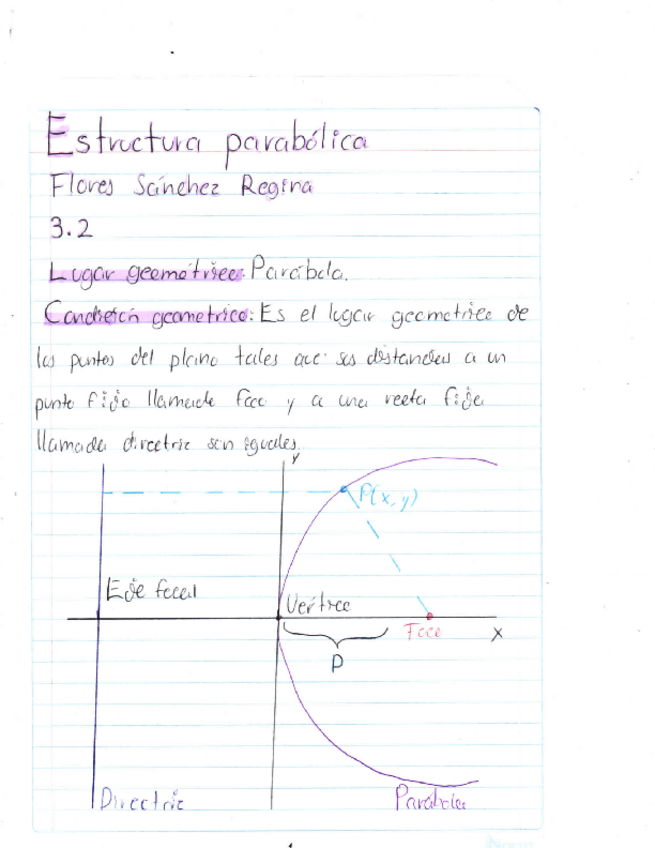 Estructura parabólica
Flores Sánchez Regina
3.2
Lugar geométrico: Parábola.
Condición geometrica: Es el lugar geometrico de
los puntos del plano tales que sus distancias a un
punto fijo llamado foco y a una recta fija
llamada directriz son iguales.
y
P(x, y)
Eje focal
Vértice
Foco
x
P
Directriz
Parábola